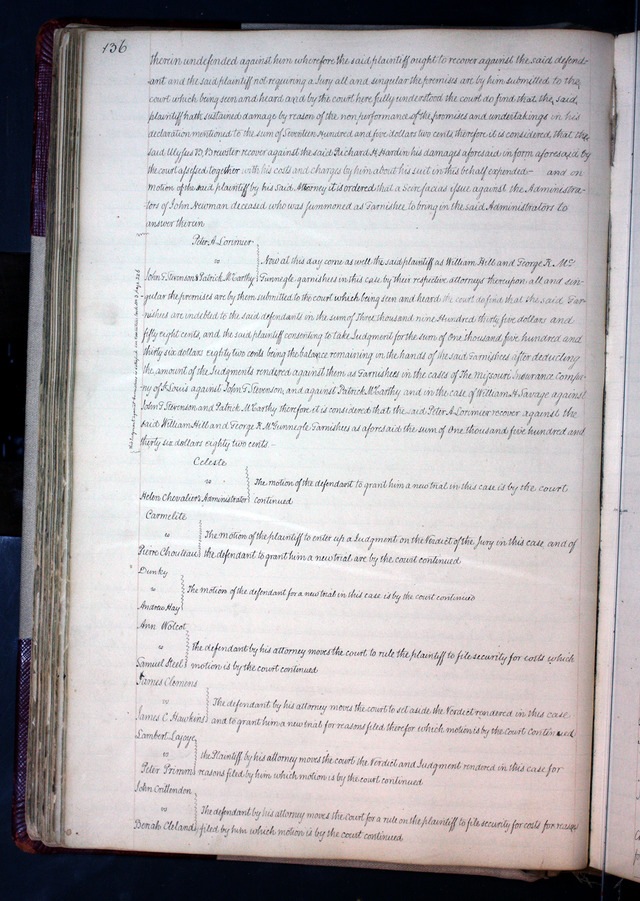 136
therein undefended against him wherefore the said plaintiff ought to recover against the said defend-
ant and the said plaintiff not requiring a Jury all and singular the premises are by him submitted to the
court which being seen and heard and by the court here fully understood the court do find that the said
plaintiff hath sustained damage by reason of the non performance of the promises and undertakings in his
declaration mentioned to the sum of Seventeen Hundred and five dollars two cents therefore it is considered that the
said Ulysses B. Brewster recover against the said Richard H. Hardin his damages aforesaid in form aforesaid by
the court assessed together with his costs and charges by him about his suit in this behalf expended and on
motion of the said plaintiff by his said Attorney it is ordered that a Scire facias issue against the Administra-
tors of John Newman deceased who was summoned as Garnishee to bring in the said Administrators to
answer therein
Peter A. Lorimier
vs
John F. Stevenson & Patrick McCarthy
Now at this day come as well the said plaintiff as William Hill and George R. Mc
Gunnegle garnishees in this case by their respective attorneys thereupon all and sin-
gular the premises are by them submitted to the court which being seen and heard the court do find that the said Gar-
nishees are indebted to the said defendants in the sum of Three thousand nine Hundred thirty five dollars and
fifty eight cents, and the said plaintiff consenting to take Judgment for the sum of One thousand five hundred and
thirty six dollars eighty two cents being the balance remaining in the hands of the said Garnishees after deducting
the amount of the Judgments rendered against them as Garnishees in the cases of The Missouri Insurance Compa-
ny of St Louis against John F Stevenson, and against Patrick McCarthy and in the case of William H Savage against
John F Stevenson and Patrick McCarthy therefore it is considered that the said Peter A Lorimier recover against the
said William Hill and George R. McGunnegle Garnishees as aforesaid the sum of One thousand five hundred and
thirty six dollars eighty two cents
Celeste
vs
Helen Chevalier's Administrator
The motion of the defendant to grant him a new trial in this case is by the court
continued
Carmelite
vs
Pierre Chouteau
The motion of the plaintiff to enter up a Judgment on the Verdict of the Jury in this case and of
the defendant to grant him a new trial are by the court continued
Dunky
vs
Andrew Hay
The motion of the defendant for a new trial in this case is by the court continued
Ann Wolcot
vs
Samuel Steel
the defendant by his attorney moves the court to rule the plaintiff to file security for costs which
motion is by the court continued
James Clemens
vs
James C. Hawkins
The defendant by his attorney moves the court to set aside the Verdict rendered in this case
and to grant him a new trial for reasons filed therefor which motion is by the court continued
Lambert Lajoye
vs
Peter Primm
the Plaintiff by his attorney moves the court the Verdict and Judgment rendered in this case for
reasons filed by him which motion is by the court continued
John Crittendon
vs
Dorah Cleland
The defendant by his attorney moves the court for a rule on the plaintiff to file security for costs for reasons
filed by him which motion is by the court continued